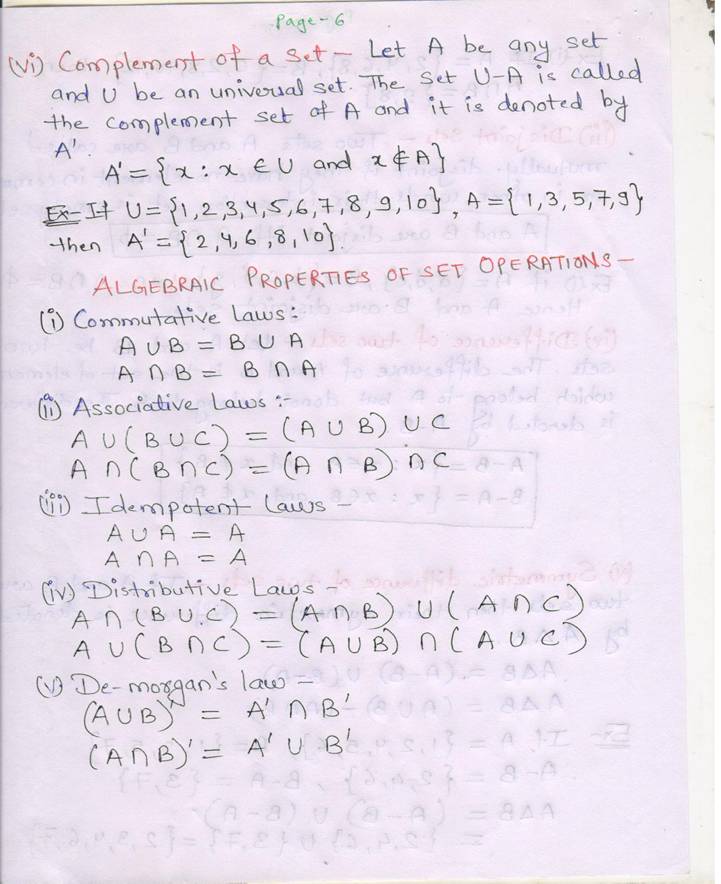 Page-6
(vi) Complement of a set- Let A be any set
and U be an universal set. The set U-A is called
the complement set of A and it is denoted by
A'.
A' = {x : x ∈ U and x ∉ A}
Ex- If U = {1,2,3,4,5,6,7,8,9,10}, A = {1,3,5,7,9}
then A' = {2,4,6,8,10}.
ALGEBRAIC PROPERTIES OF SET OPERATIONS-
(i) Commutative Laws:
A ∪ B = B ∪ A
A ∩ B = B ∩ A
(ii) Associative Laws :-
A ∪ (B ∪ C) = (A ∪ B) ∪ C
A ∩ (B ∩ C) = (A ∩ B) ∩ C
(iii) Idempotent Laws -
A ∪ A = A
A ∩ A = A
(iv) Distributive Laws -
A ∩ (B ∪ C) = (A ∩ B) ∪ (A ∩ C)
A ∪ (B ∩ C) = (A ∪ B) ∩ (A ∪ C)
(v) De-morgan's law -
(A ∪ B)' = A' ∩ B'
(A ∩ B)' = A' ∪ B'